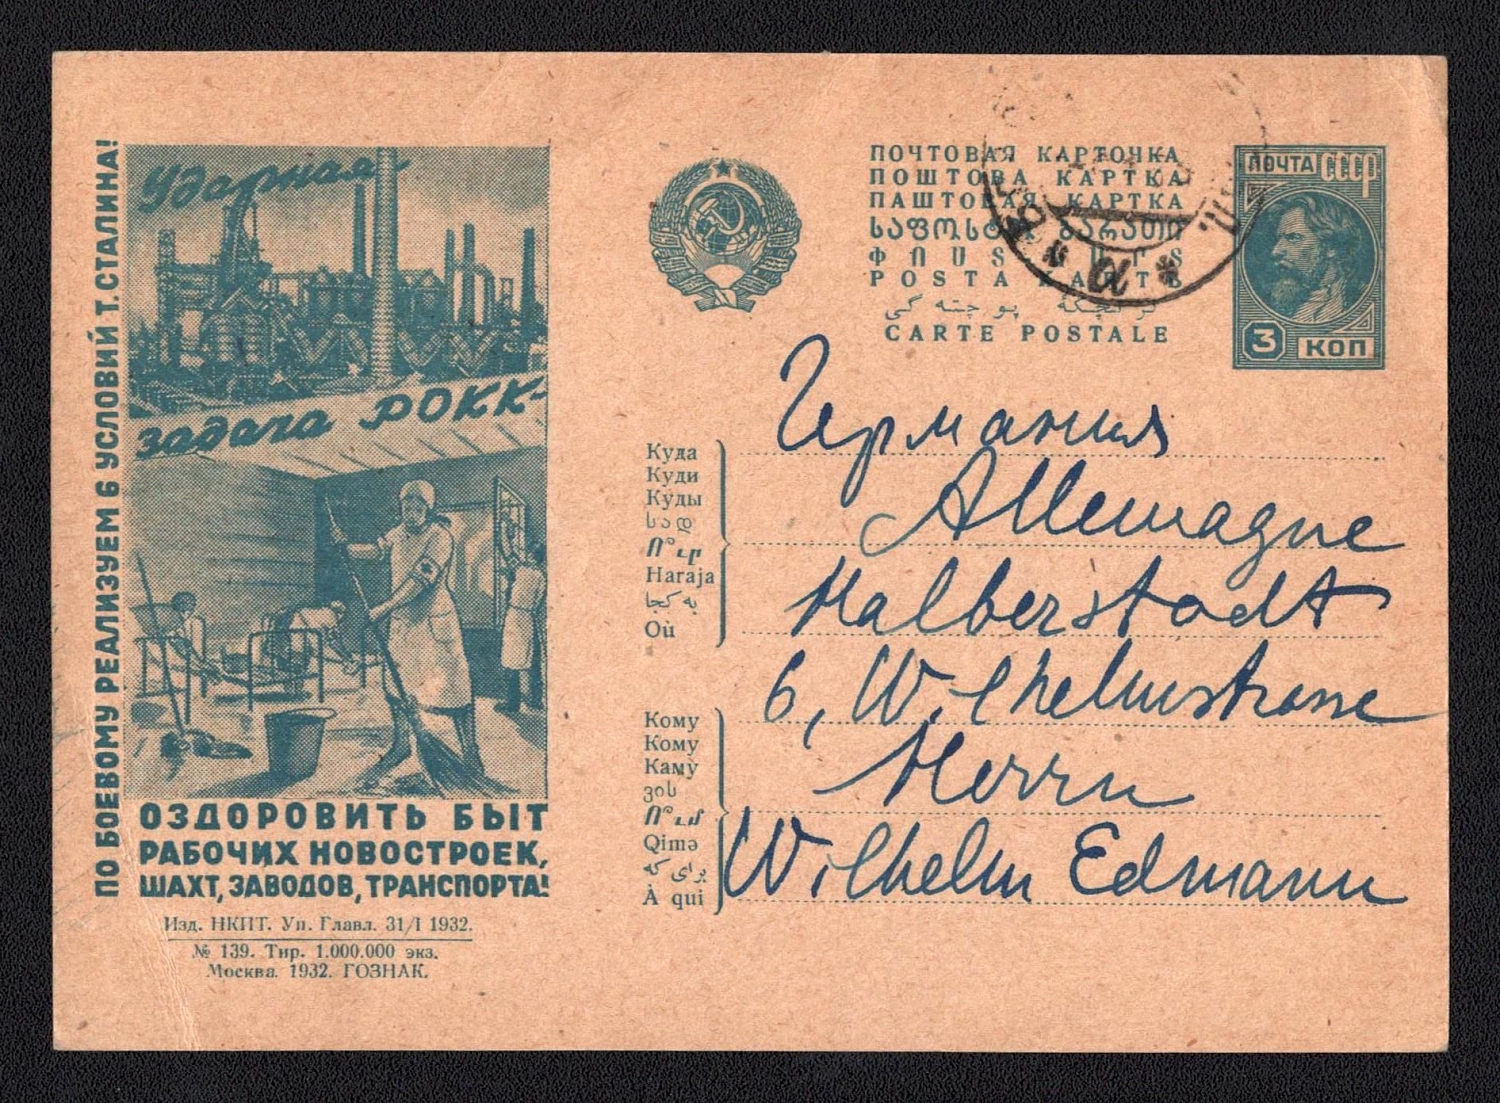 ПО БОЕВОМУ РЕАЛИЗУЕМ 6 УСЛОВИЙ Т. СТАЛИНА!
Ударная
задача РОКК-
ОЗДОРОВИТЬ БЫТ
РАБОЧИХ НОВОСТРОЕК,
ШАХТ, ЗАВОДОВ, ТРАНСПОРТА!
Изд. НКПТ. Уп. Главл. 31/I 1932.
№ 139. Тир. 1.000.000 экз.
Москва. 1932. ГОЗНАК.
ПОЧТОВАЯ КАРТОЧКА
ПОШТОВА КАРТКА
ПАШТОВАЯ КАРТКА
ᲡᲐᲤᲝᲡᲢᲝ ᲑᲐᲠᲐᲗᲘ
POSTA
CARTE POSTALE
ПОЧТА СССР
3 КОП
Куда
Куди
Куды
სად
Ո՞ւր
Haraja
به كجا
Où
Кому
Кому
Каму
ვის
Ո՞ւմ
Qimə
برای که
À qui
Германия
Allemagne
Halberstadt
6, Wilhelmstrasse
Herrn
Wilhelm Edmann